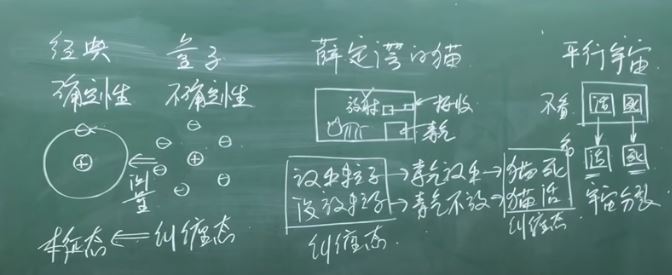 经典
量子
确定性
不确定性
⊖
⊕
⊖ ⊖ ⊖ ⊖ ⊖ ⊖
⊕
测量
本征态 ⇐ 纠缠态
薛定谔的猫
放射
接收
毒气
放出粒子→毒气放出→猫死
没放出粒子→毒气不放→猫活
纠缠态
纠缠态
平行宇宙
不看
活 死
看
活 死
宇宙分裂